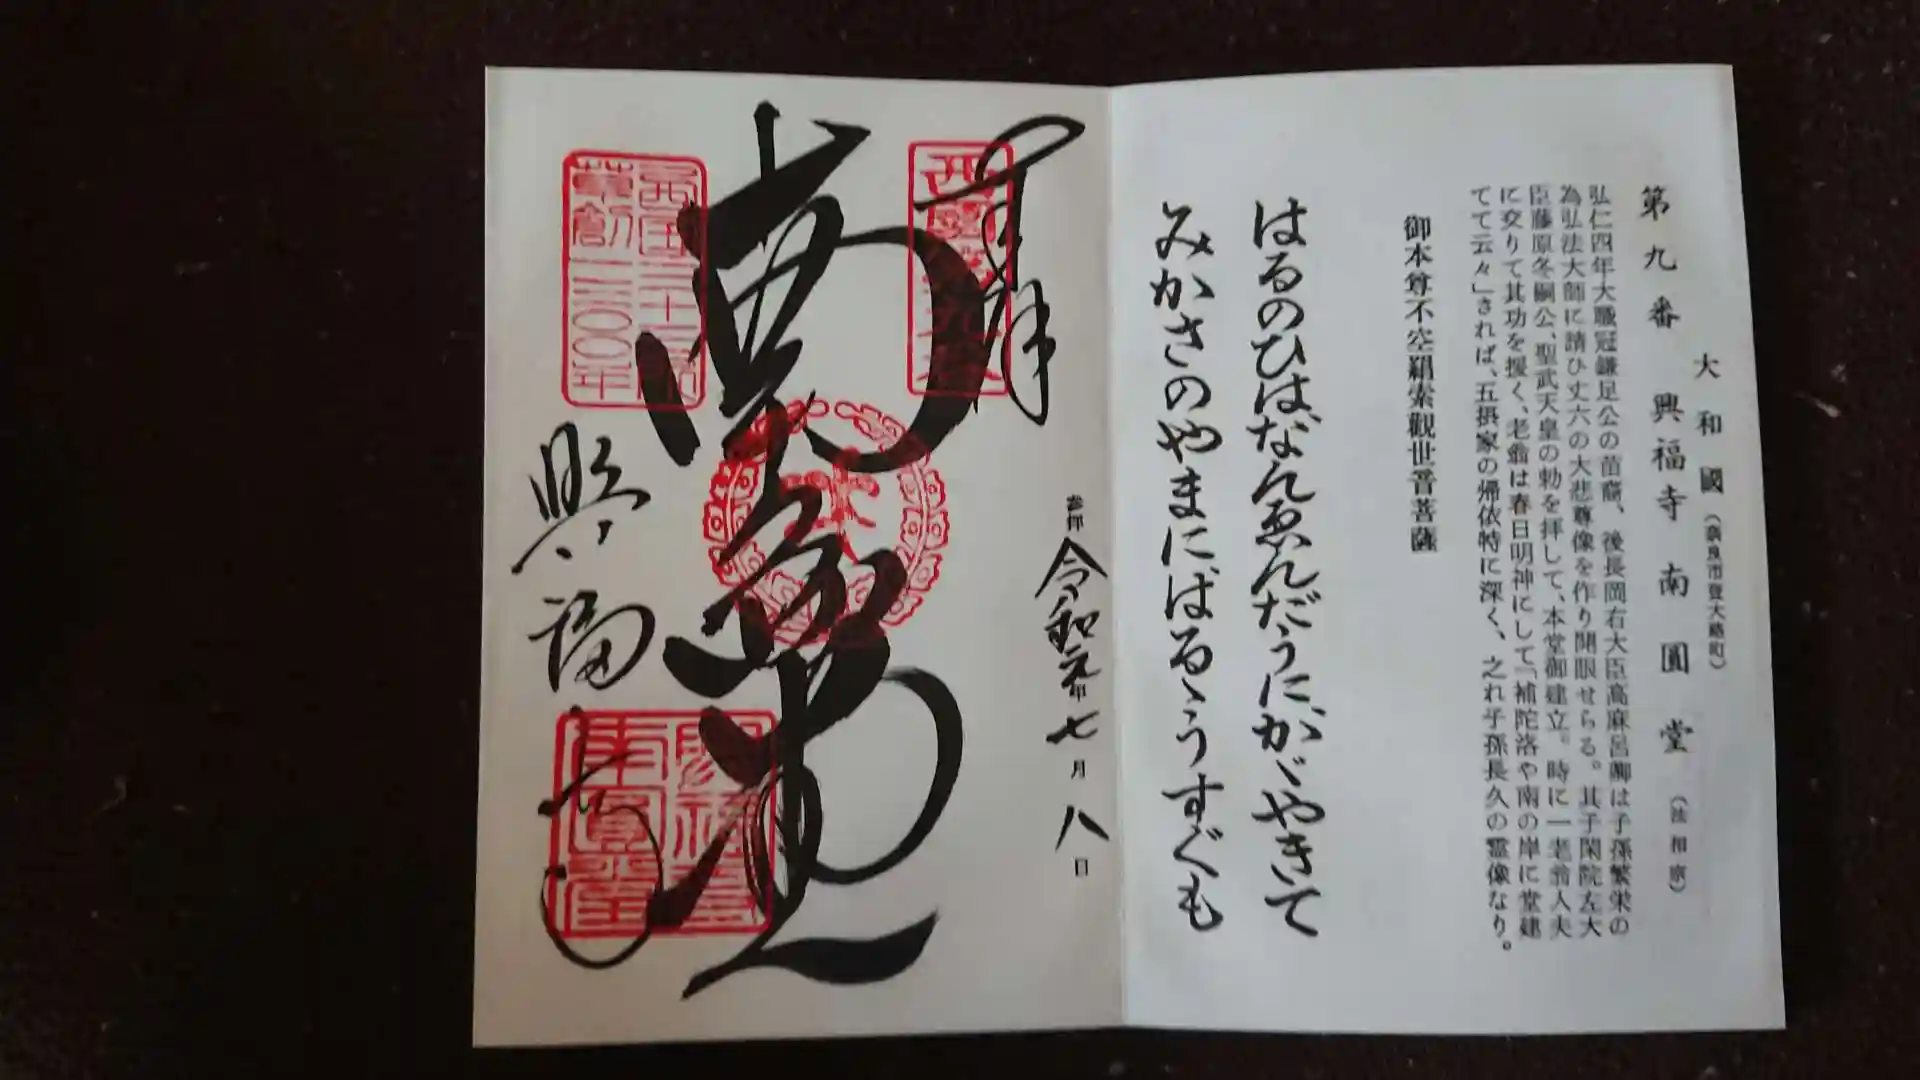 大和國（奈良市登大路町）
第九番　興福寺南圓堂（法相宗）
弘仁四年大職冠鎌足公の苗裔、後長岡右大臣髙麻呂卿は子孫繁栄の
為弘法大師に請ひ丈六の大悲尊像を作り開眼せらる。其子閑院左大
臣藤原冬嗣公、聖武天皇の勅を拝して、本堂御建立。時に一老翁人夫
に交りて其功を援く、老翁は春日明神にして「補陀洛や南の岸に堂建
てて云々」されば、五摂家の帰依特に深く、之れ子孫長久の霊像なり。
御本尊不空羂索觀世音菩薩
はるのひはなんゑんだうにかゞやきて
みかさのやまにはるゝうすぐも
奉拝
参拝令和元年七月八日
西國第九番
南円堂
西国三十三所
草創一三〇〇年
興福寺
南圓堂